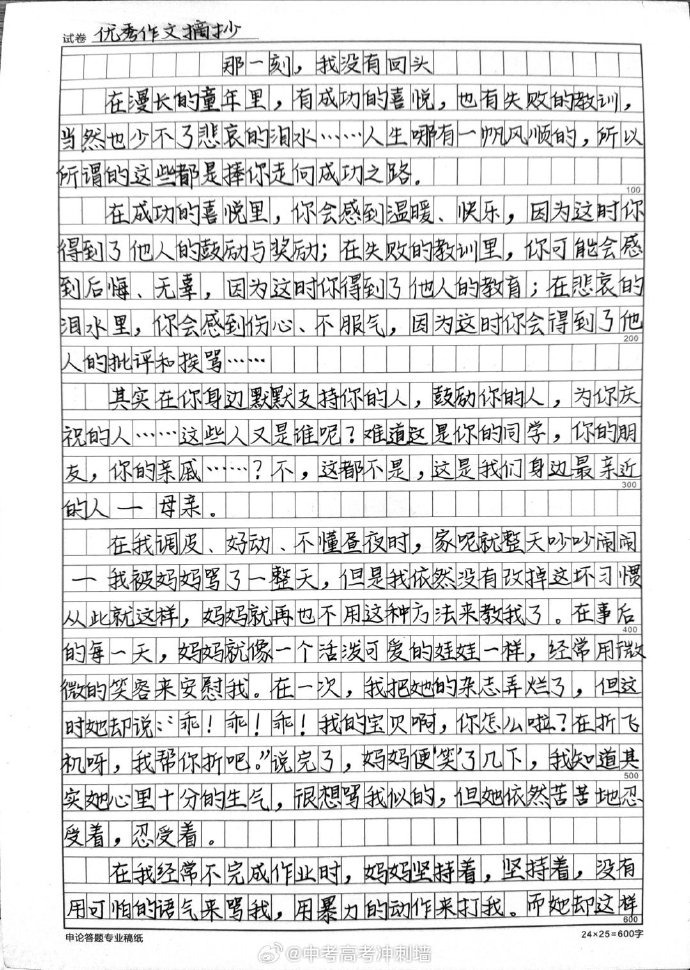 试卷 优秀作文摘抄
那一刻，我没有回头
在漫长的童年里，有成功的喜悦，也有失败的教训，
当然也少不了悲哀的泪水……人生哪有一帆风顺的，所以
所谓的这些都是捧你走向成功之路.
100
在成功的喜悦里，你会感到温暖、快乐，因为这时你
得到了他人的鼓励与奖励；在失败的教训里，你可能会感
到后悔、无辜，因为这时你得到了他人的教育；在悲哀的
泪水里，你会感到伤心、不服气，因为这时你会得到了他
200
人的批评和挨骂……
其实在你身边默默支持你的人，鼓励你的人，为你庆
祝的人……这些人又是谁呢？难道这是你的同学，你的朋
友，你的亲戚……？不，这都不是，这是我们身边最亲近
300
的人一母亲。
在我调皮、好动、不懂昼夜时，家呢就整天吵吵闹闹
一我被妈妈骂了一整天，但是我依然没有改掉这坏习惯
从此就这样，妈妈就再也不用这种方法来教我了。在事后
400
的每一天，妈妈就像一个活泼可爱的娃娃一样，经常用微
微的笑容来安慰我。在一次，我把她的杂志弄烂了，但这
时她却说：“乖！乖！乖！我的宝贝啊，你怎么啦？在折飞
机呀，我帮你折吧。”说完了，妈妈便‘笑’了几下，我知道其
500
实她心里十分的生气，很想骂我似的，但她依然苦苦地忍
受着，忍受着。
在我经常不完成作业时，妈妈坚持着，坚持着，没有
用可怕的语气来骂我，用暴力的动作来打我。而她却这样
600
申论答题专业稿纸
24×25=600字
@中考高考冲刺墙